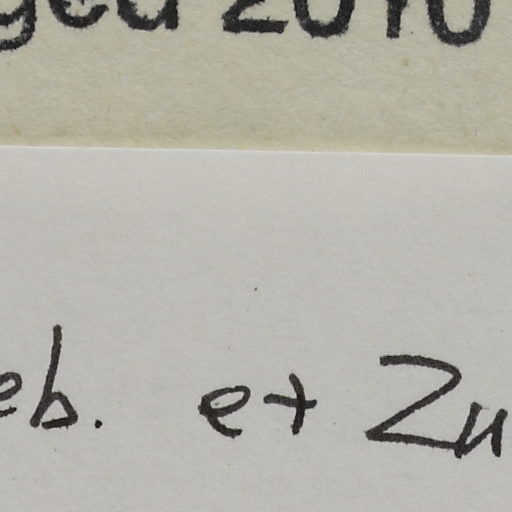 ged 2010
eb. et Zu